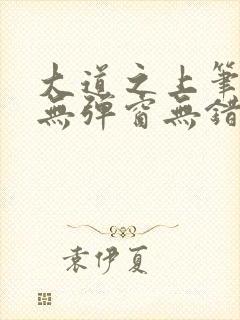 大道之上筆
無彈窗無錯
袁伊夏